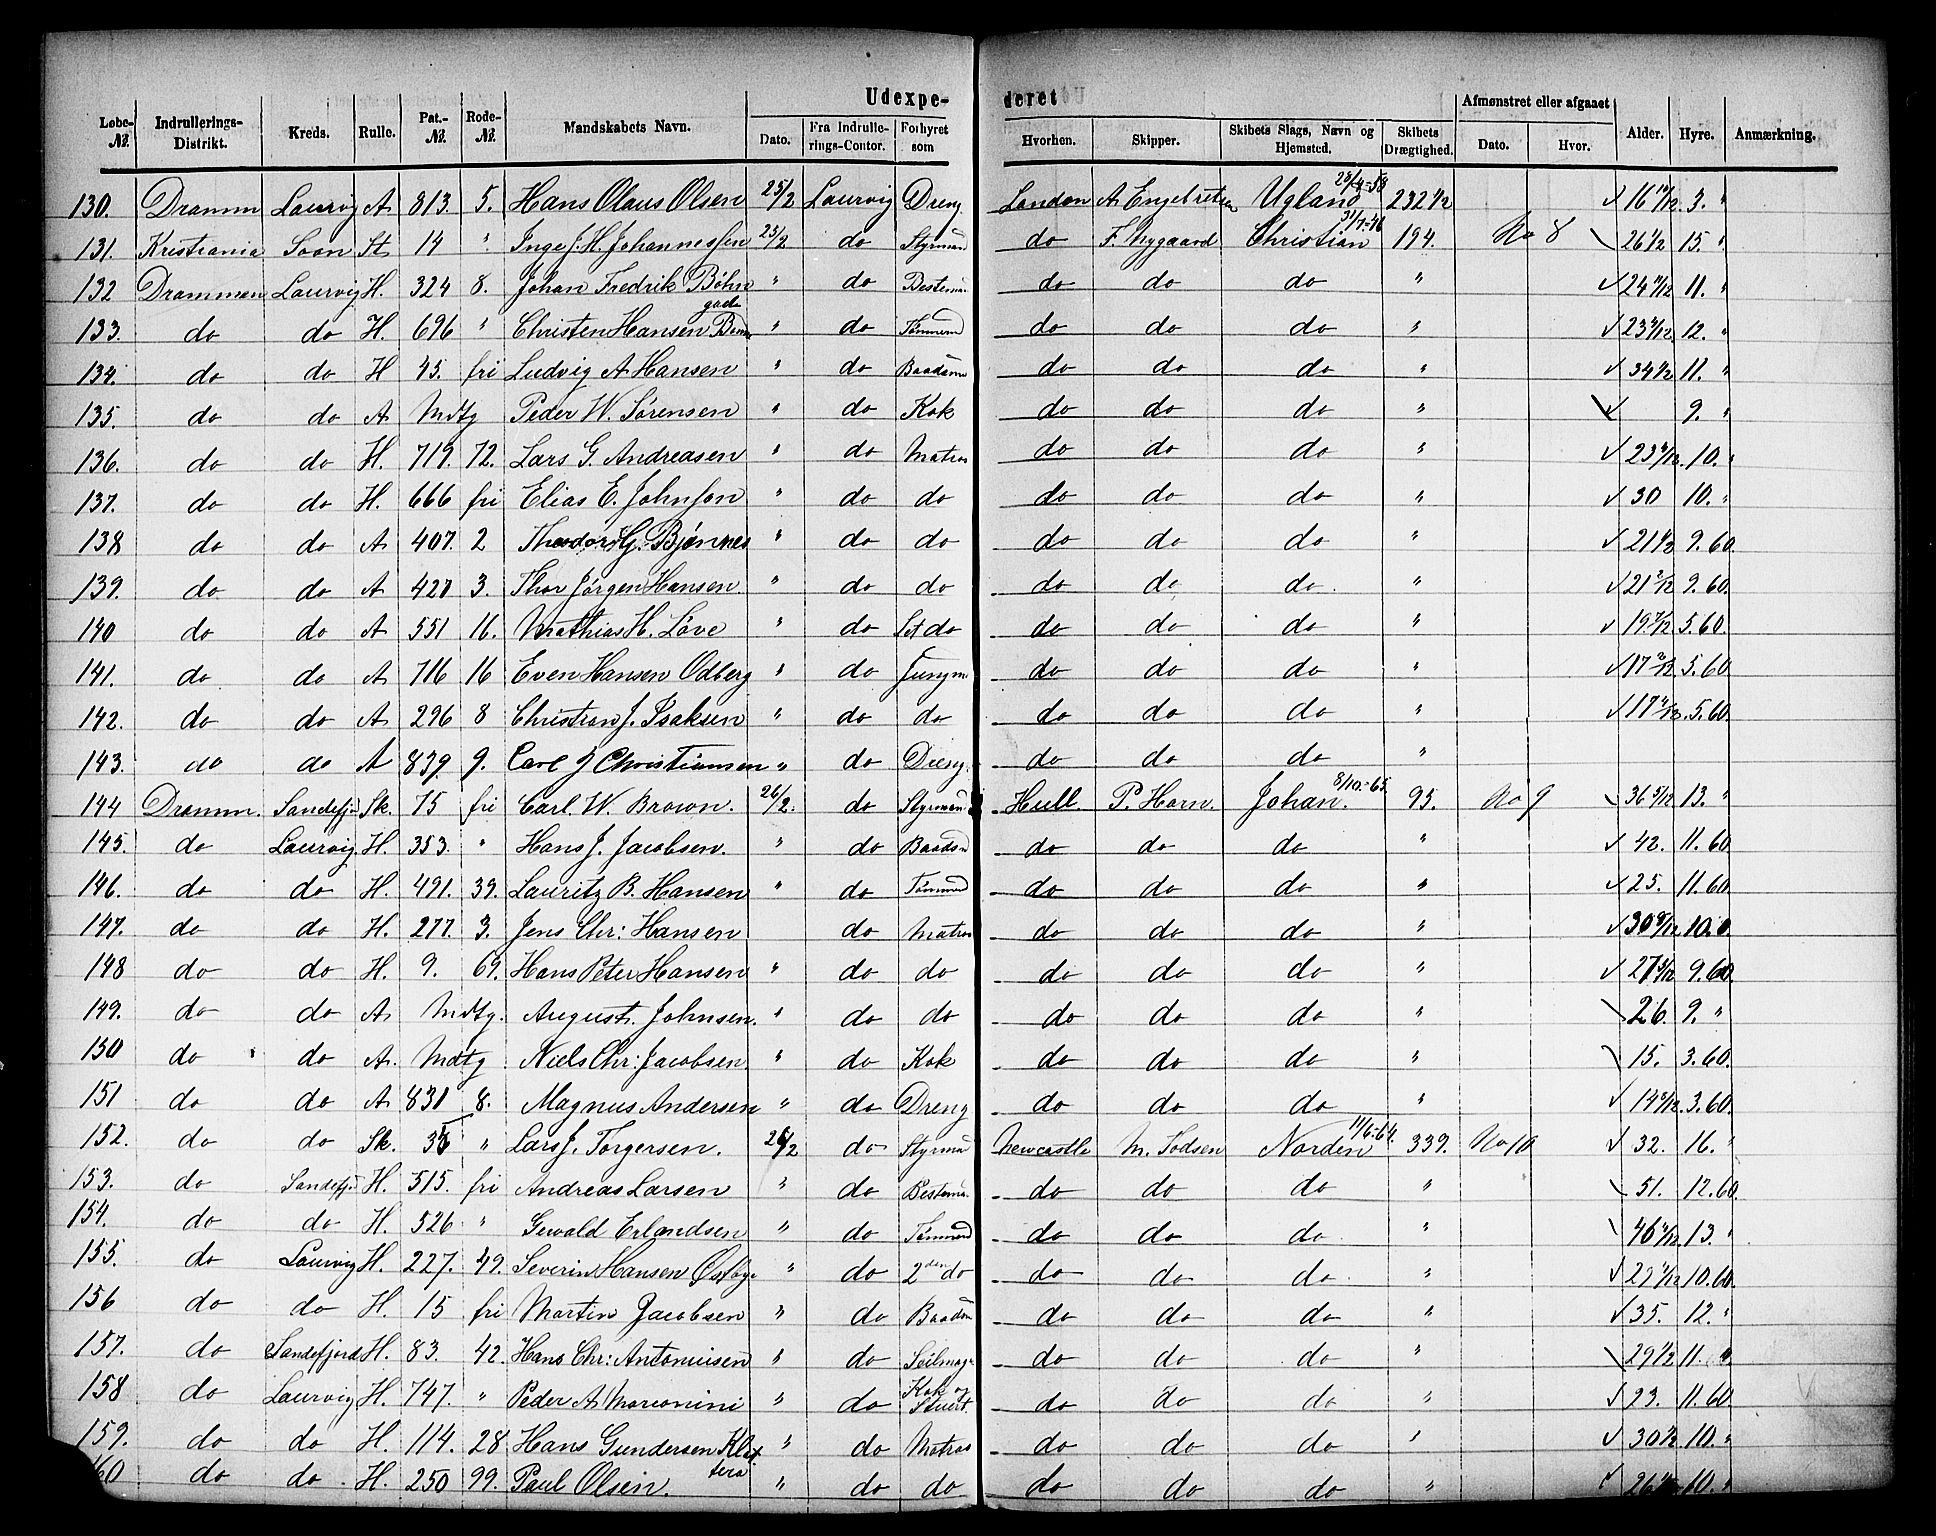 Udexpe-deret
Løbe-№. Indrullerings-Distrikt. Kreds. Rulle. Pat.-№. Rode-№. Mandskabets Navn. Dato. Fra Indrullerings-Contor. Forhyret som Hvorhen. Skipper. Skibets Slags, Navn og Hjemsted. Skibets Drægtighed. Afmønstret eller afgaaet Dato. Hvor. Alder. Hyre. Anmærkning.
130. Dramm Laurvig A 813. 5. Hans Olaus Olsen 25/2 Laurvig Dreng London A. Engebretsen Ugland 232 1/2 16 3. "
131. Kristiania Soon St 14 " Inge J. H. Johannessen 23/2 do Styrmand do F. Nygaard Christian 31/7-46 194. No 8 26 1/2 15. "
132 Drammen Laurvig H. 324 8. Johan Fredrik Bøhn " do Bestem. do do do " 24 11. "
133. do do H. 696 " Christen Hansen " do Tømmermd do do do " 23 12. "
134. do do H 45. fri Ludvig A Hansen " do Baadsmd do do do " 34 1/2 11. "
135. do do A Mdtg Peder W. Sørensen " do Kok do do do " 9. "
136. do do H. 719. 72. Lars G. Andreasen " do Matros do do do " 23 10. "
137. do do H. 666 fri Elias E. Johnsen " do do do do do " 30 10. "
138 do do A 407. 2 Theodor G. Bjønnes " do do do do do " 21 1/2 9.60.
139. do do A 427 3. Thor Jørgen Hansen. " do do do do do. " 21 2/12 9.60.
140 do do A 551 16. Mathias H. Løve " do Let do do do do " 19 5.60.
141. do do A 716 16 Even Hansen Odberg " do Jungm do do do " 17 5.60
142. do do A 296 8 Christian J. Isaksen " do do do do do " 17 5.60.
143. do do A 839 9. Carl J Christiansen " do Dreng do do do "
144 Dramm. Sandefj Sk. 75 fri Carl. W. Brown. 26/2. do Styrmand Hull. P. Horn. Johan. 8/10.-65 95. No 9 36 5/12 13. "
145. do Laurvig H. 353. " Hans J. Jacobsen. " do Baadsmd do do do " 42. 11.60
146. do do H. 491. 39. Lauritz B. Hansen " do Tømmermd do do do " 25. 11.60
147. do do H. 277. 3. Jens Chr: Hansen do Matros do do do " 30 10.
148 do do H. 9. 69. Hans Peter Hansen " do do do do do " 27 9.60
149. do do A Mdtg. August. Johnsen. " do do do do do " 26. 9. "
150 do do A. Mdtg Niels Chr: Jacobsen " do Kok do do do " 15. 3.60.
151 do do A 831 8. Magnus Andersen " do Dreng do do do " 14 3.60.
152. do do Sk. 35 " Lars J. Torgersen. 26/2 do Styrmd Newcastle M. Sodsen Norden 11/6-64. 339. No 10 32. 16. "
153. do Sandefj H. 515. fri Andreas Larsen " do Bestem. do do do " 51. 12.60
154. do do H. 526 " Gewald Erlandsen " do Tømmermd do do do " 46 13. "
155. do Laurvig H. 227. 49. Severin Hansen " do 2den do do do do. " 29 10.60
156 do do H. 15 fri Martin Jacobsen " do Baadsm do do do " 35. 12. "
157. do Sandefjord H. 83. 42. Hans Chr: Antonisen " do Seilmag do do do " 29 1/2 11.
158 do Laurvig H. 747. " Peder A. " do Kok og Stuert. do do do " 23. 11.60
159. do do H. 114. 28 Hans Gundersen " do Matros do do do " 30 1/2 10. "
160 do do. H. 250 99. Paul Olsen. " do do do do do " 26 10. "